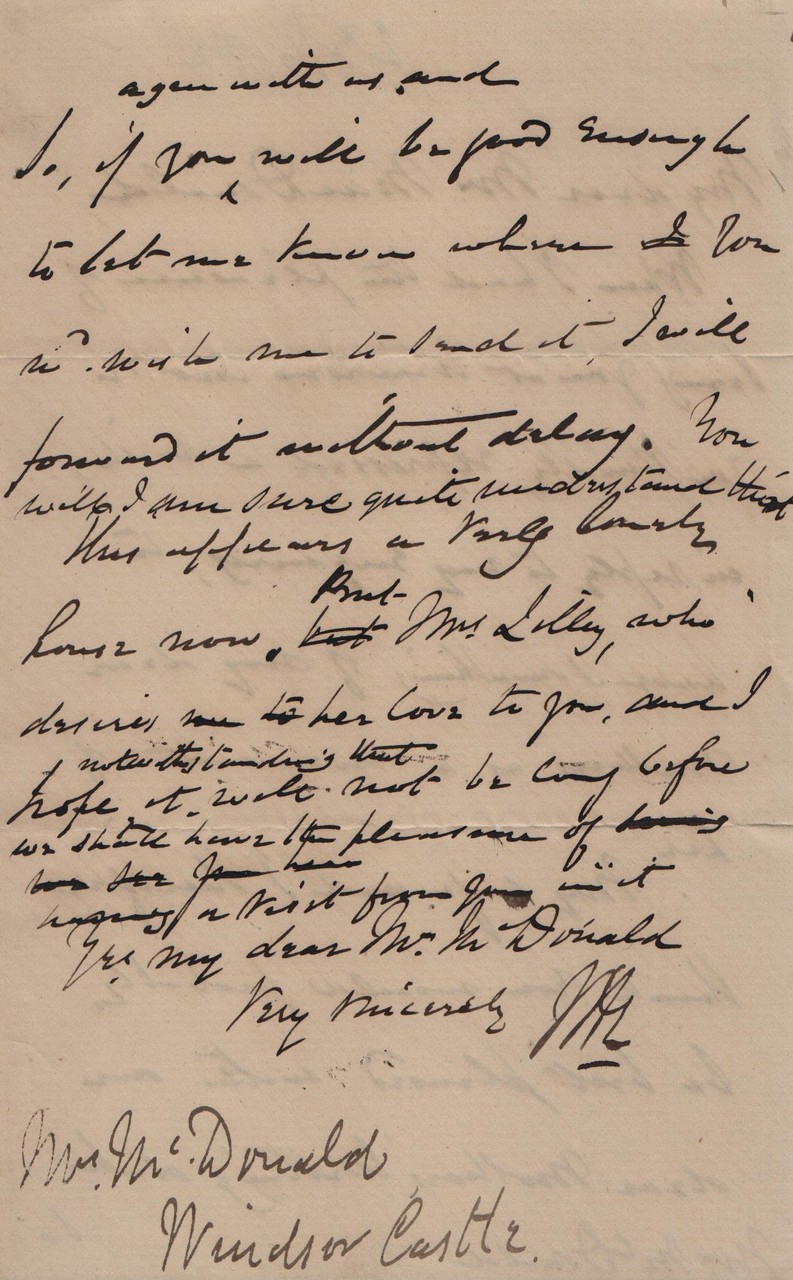 agree with us, and
So, if you will be good enough
to let me know where I you
wd. wish me to send it, I will
forward it without delay. You
will, I am sure quite understand that
this appears a very lonely
But
house now, but Mrs Lilley, who
desires me to her love to you, and I
notwithstanding that
hope it will not be long before
we shall have the pleasure of having
we see you here
a visit from you in it
Yrs. my dear Mrs. McDonald
Very sincerely
Mrs. McDonald
Windsor Castle.